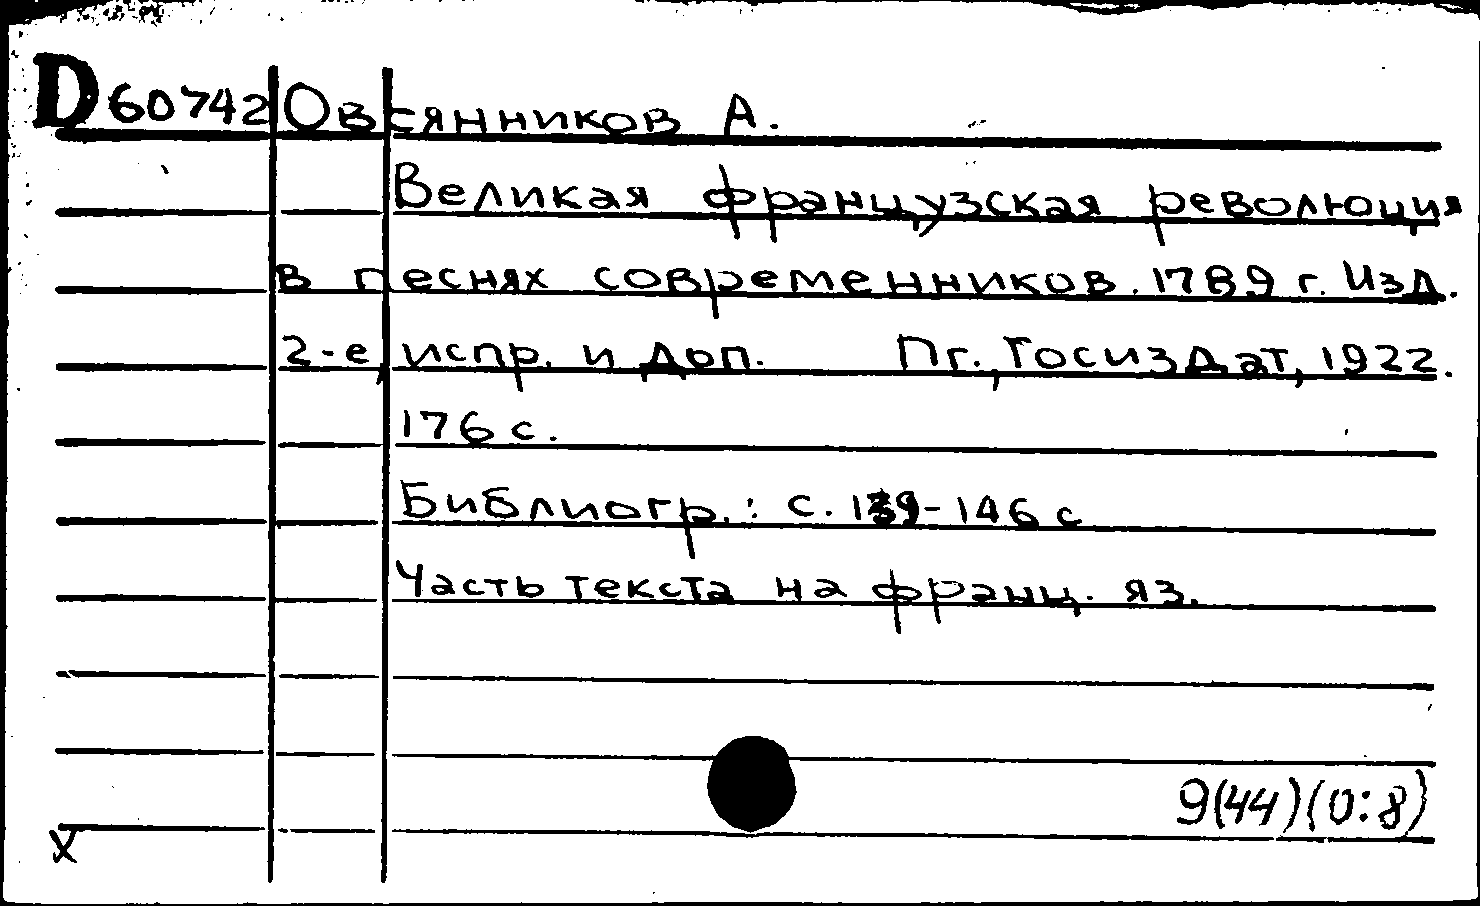 D 60742 Овсянников А.
Великая французская революция
в песнях современников. 1789 г. Изд.
2-е, испр. и доп. Пг., Госиздат, 1922.
176 с.
Библиогр.: с. 139-146 с
Часть текста на франц. яз.
9(44)(0:8)
X